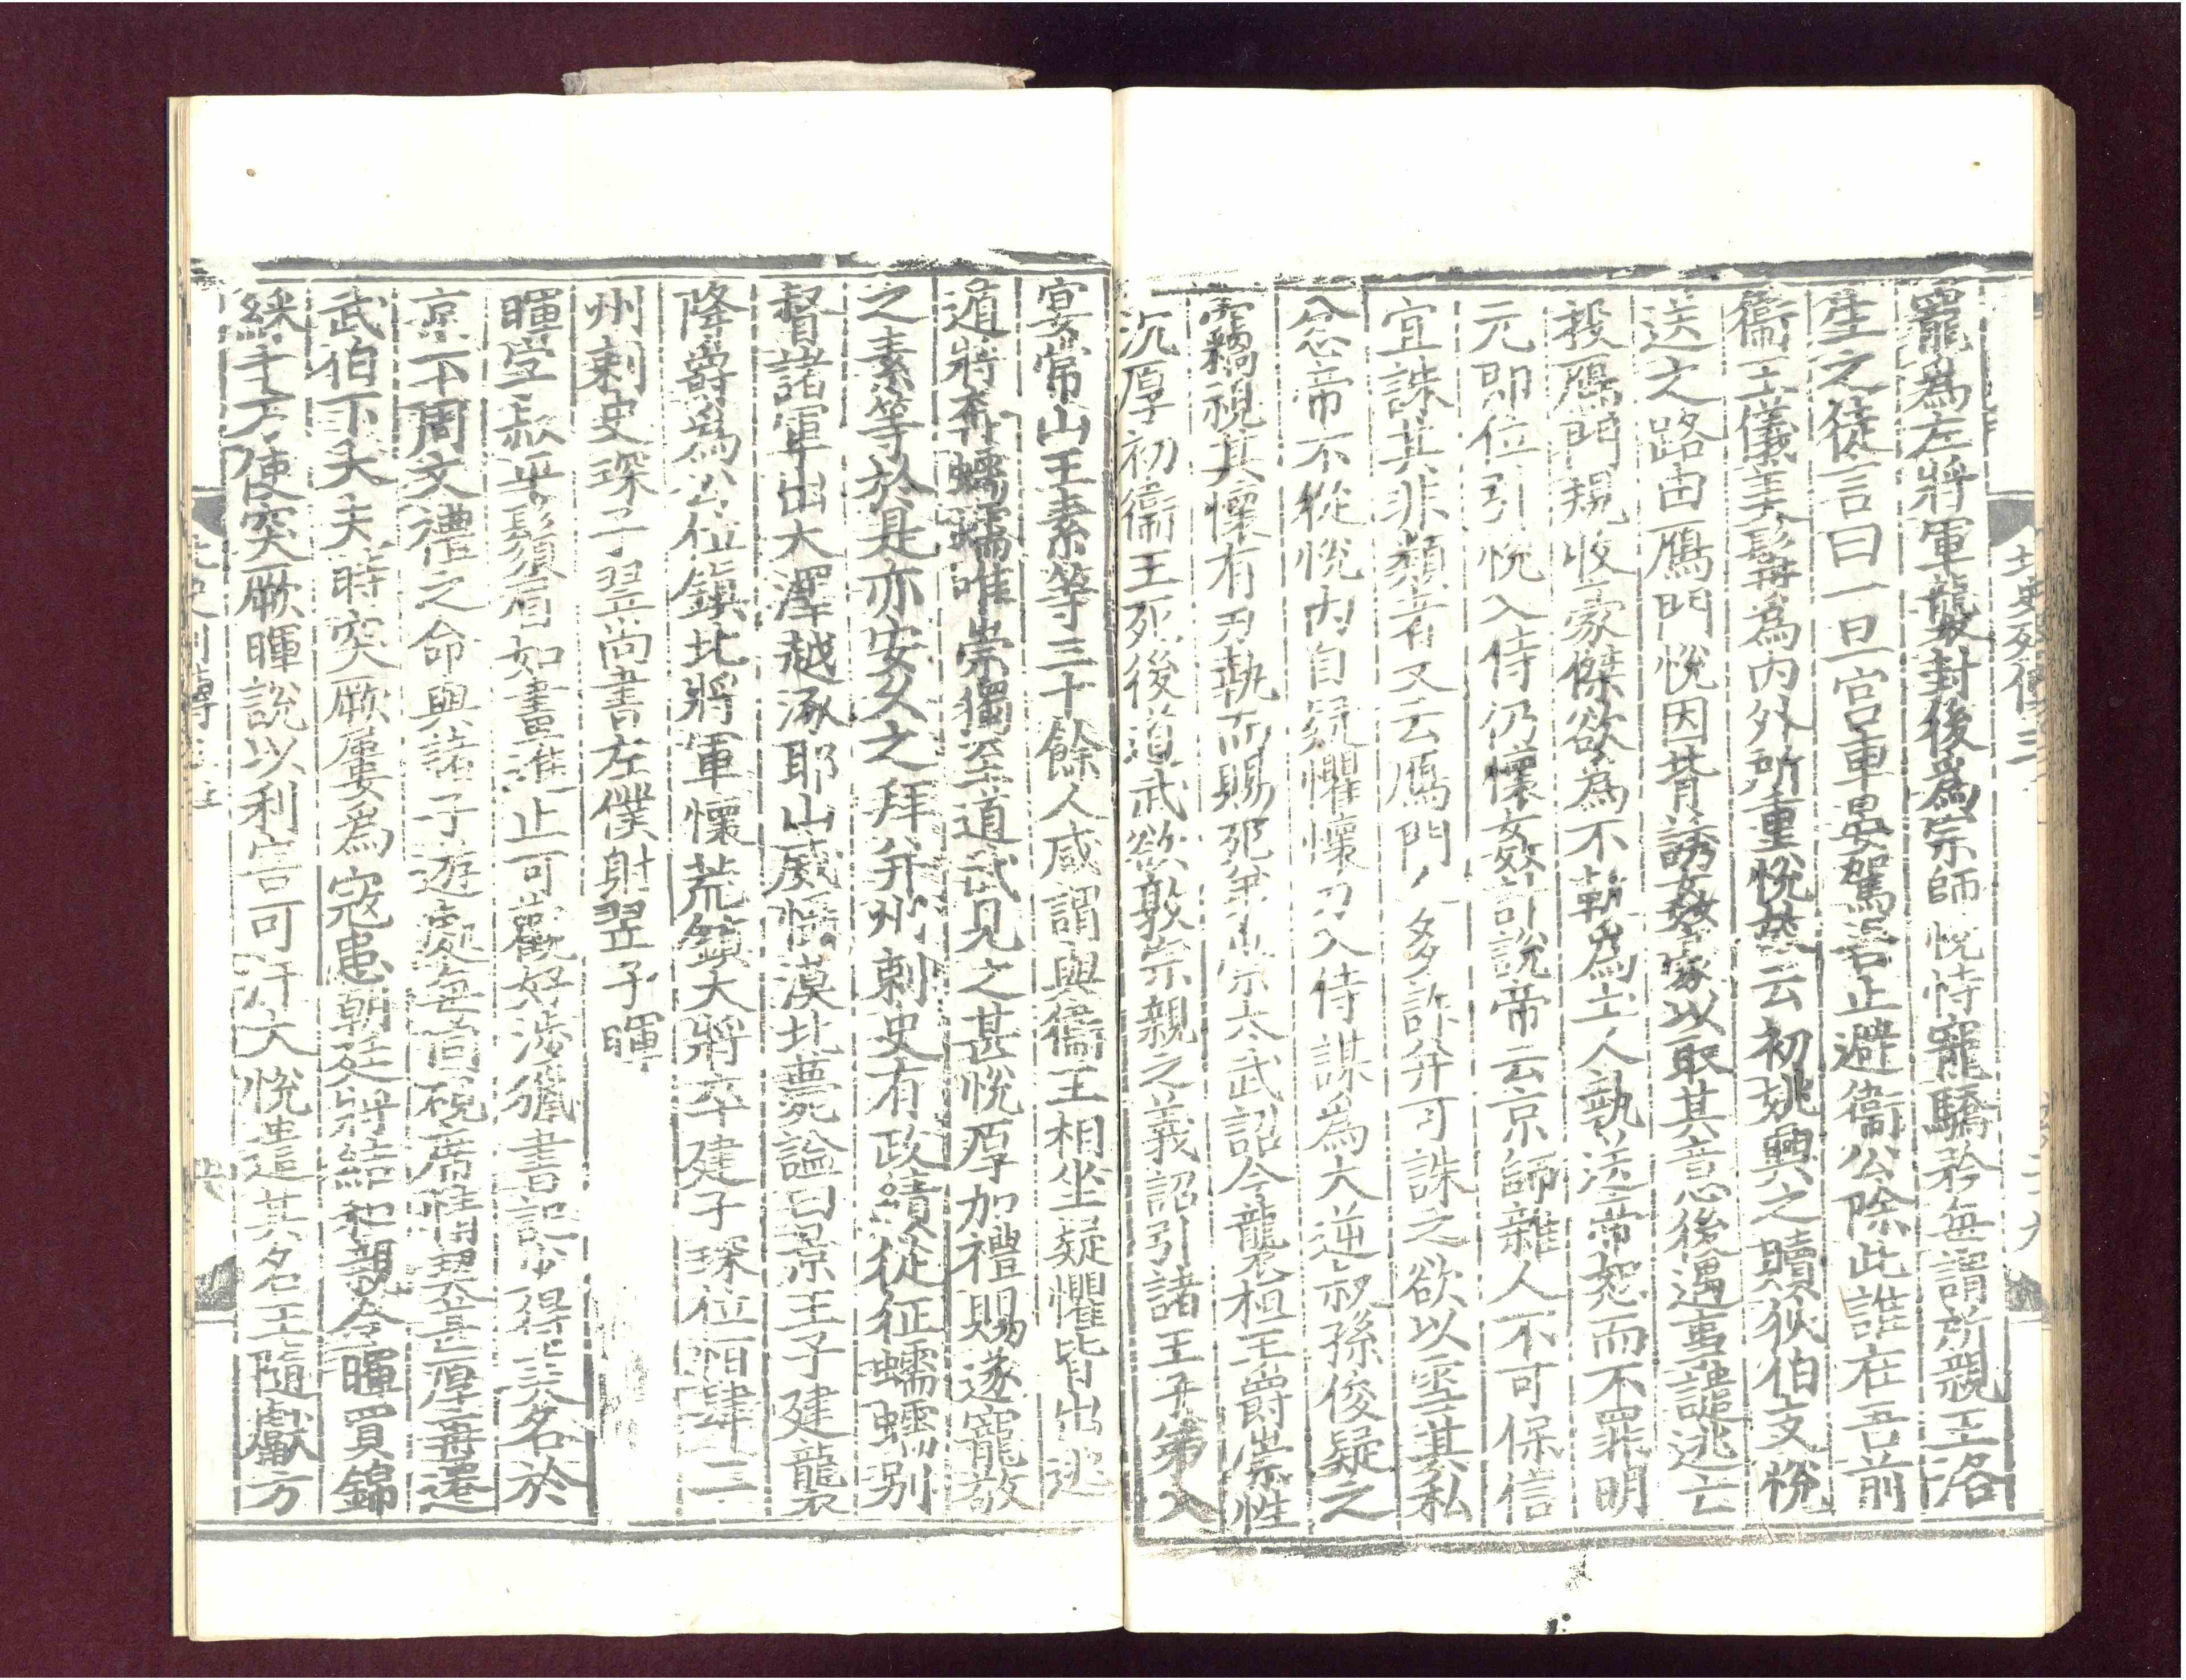 北史列傳三
寵爲左將軍襲封後爲宗師悅恃寵驕矜每謂所親王洛
生之徒言曰一旦宮車晏駕吾止避衞公除此誰在吾前
衞王儀美髯爲內外所重悅故云初姚興之贖狄伯支悅
送之路由鴈門悅因背誘姦豪以取其意後遇事譴逃亡
投鴈門規收豪傑欲爲不軌爲土人執送帝恕而不罪明
元即位引悅入侍仍懷姦計說帝云京師雜人不可保信
宜誅其非類者又云鴈門人多詐幷可誅之欲以雪其私
忿帝不從悅內自疑懼懷刀入侍謀爲大逆叔孫俊疑之
竊視其懷有刃執而賜死弟崇太武詔令襲桓王爵崇性
沉厚初衞王死後道武欲敦宗親之義詔引諸王子弟入
宴常山王素等三十餘人咸謂與衞王相坐疑懼皆出逃
遁將奔蠕蠕唯崇獨至道武見之甚悅厚加禮賜遂寵敬
之素等於是亦安久之拜幷州刺史有政績從征蠕蠕別
督諸軍出大澤越涿耶山威懾漠北薨謚曰景王子建襲
降爵爲公位鎮北將軍懷荒鎮大將卒建子琛位恒肆二
州刺史琛子翌尚書左僕射翌子暉
暉字叔平鬚眉如畫進止可觀好涉獵書記少得美名於
京下周文禮之命與諸子遊處每同硯席情契甚厚再遷
武伯下大夫時突厥屢爲寇患朝廷將結和親令暉賫錦
綵十萬使突厥暉說以利害可汗大悅遣其名王隨獻方